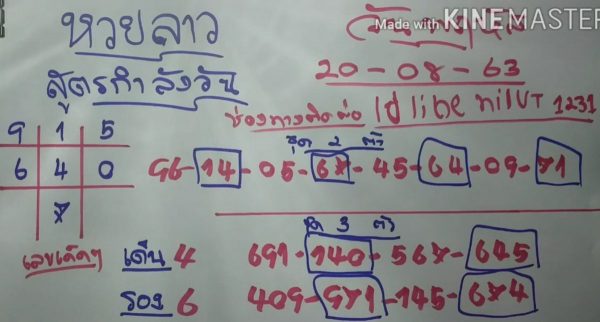 Made with KINEMASTER
หวยลาว
สูตรกำลังวัน
20-08-63
ช่องทางติดต่อ Id line
1231
ชุด 2 ตัว
9 1 5
6 4 0
7
96-14-05-67-45-64-09-71
ชุด 3 ตัว
เลขเด็ดๆ
เด่น 4
691-140-567-645
รอง 6
409-971-145-674